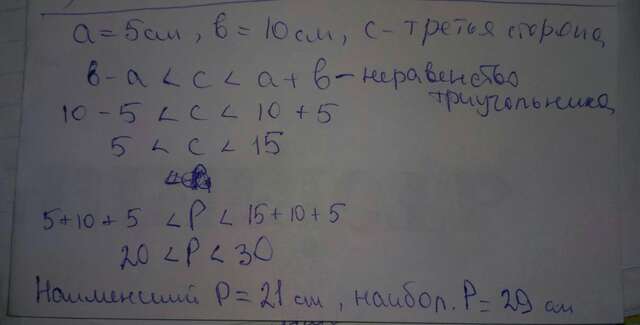 a = 5см, в = 10см, с - третья сторона
в - a < c < a + в - неравенство
треугольника
10 - 5 < c < 10 + 5
5 < c < 15
5+10+5 < P < 15+10+5
20 < P < 30
Наименший P = 21 см, наибол. P = 29 см